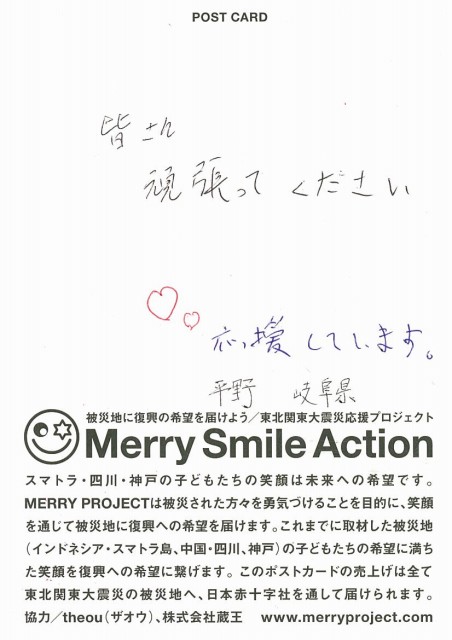 POST CARD
皆さん
頑張って ください
応援しています。
平野 岐阜県
被災地に復興の希望を届けよう/東北関東大震災応援プロジェクト
Merry Smile Action
スマトラ・四川・神戸の子どもたちの笑顔は未来への希望です。
MERRY PROJECTは被災された方々を勇気づけることを目的に、笑顔
を通じて被災地に復興への希望を届けます。これまでに取材した被災地
(インドネシア・スマトラ島、中国・四川、神戸)の子どもたちの希望に満ち
た笑顔を復興への希望に繋げます。このポストカードの売上げは全て
東北関東大震災の被災地へ、日本赤十字社を通して届けられます。
協力/theou(ザオウ)、株式会社蔵王 www.merryproject.com